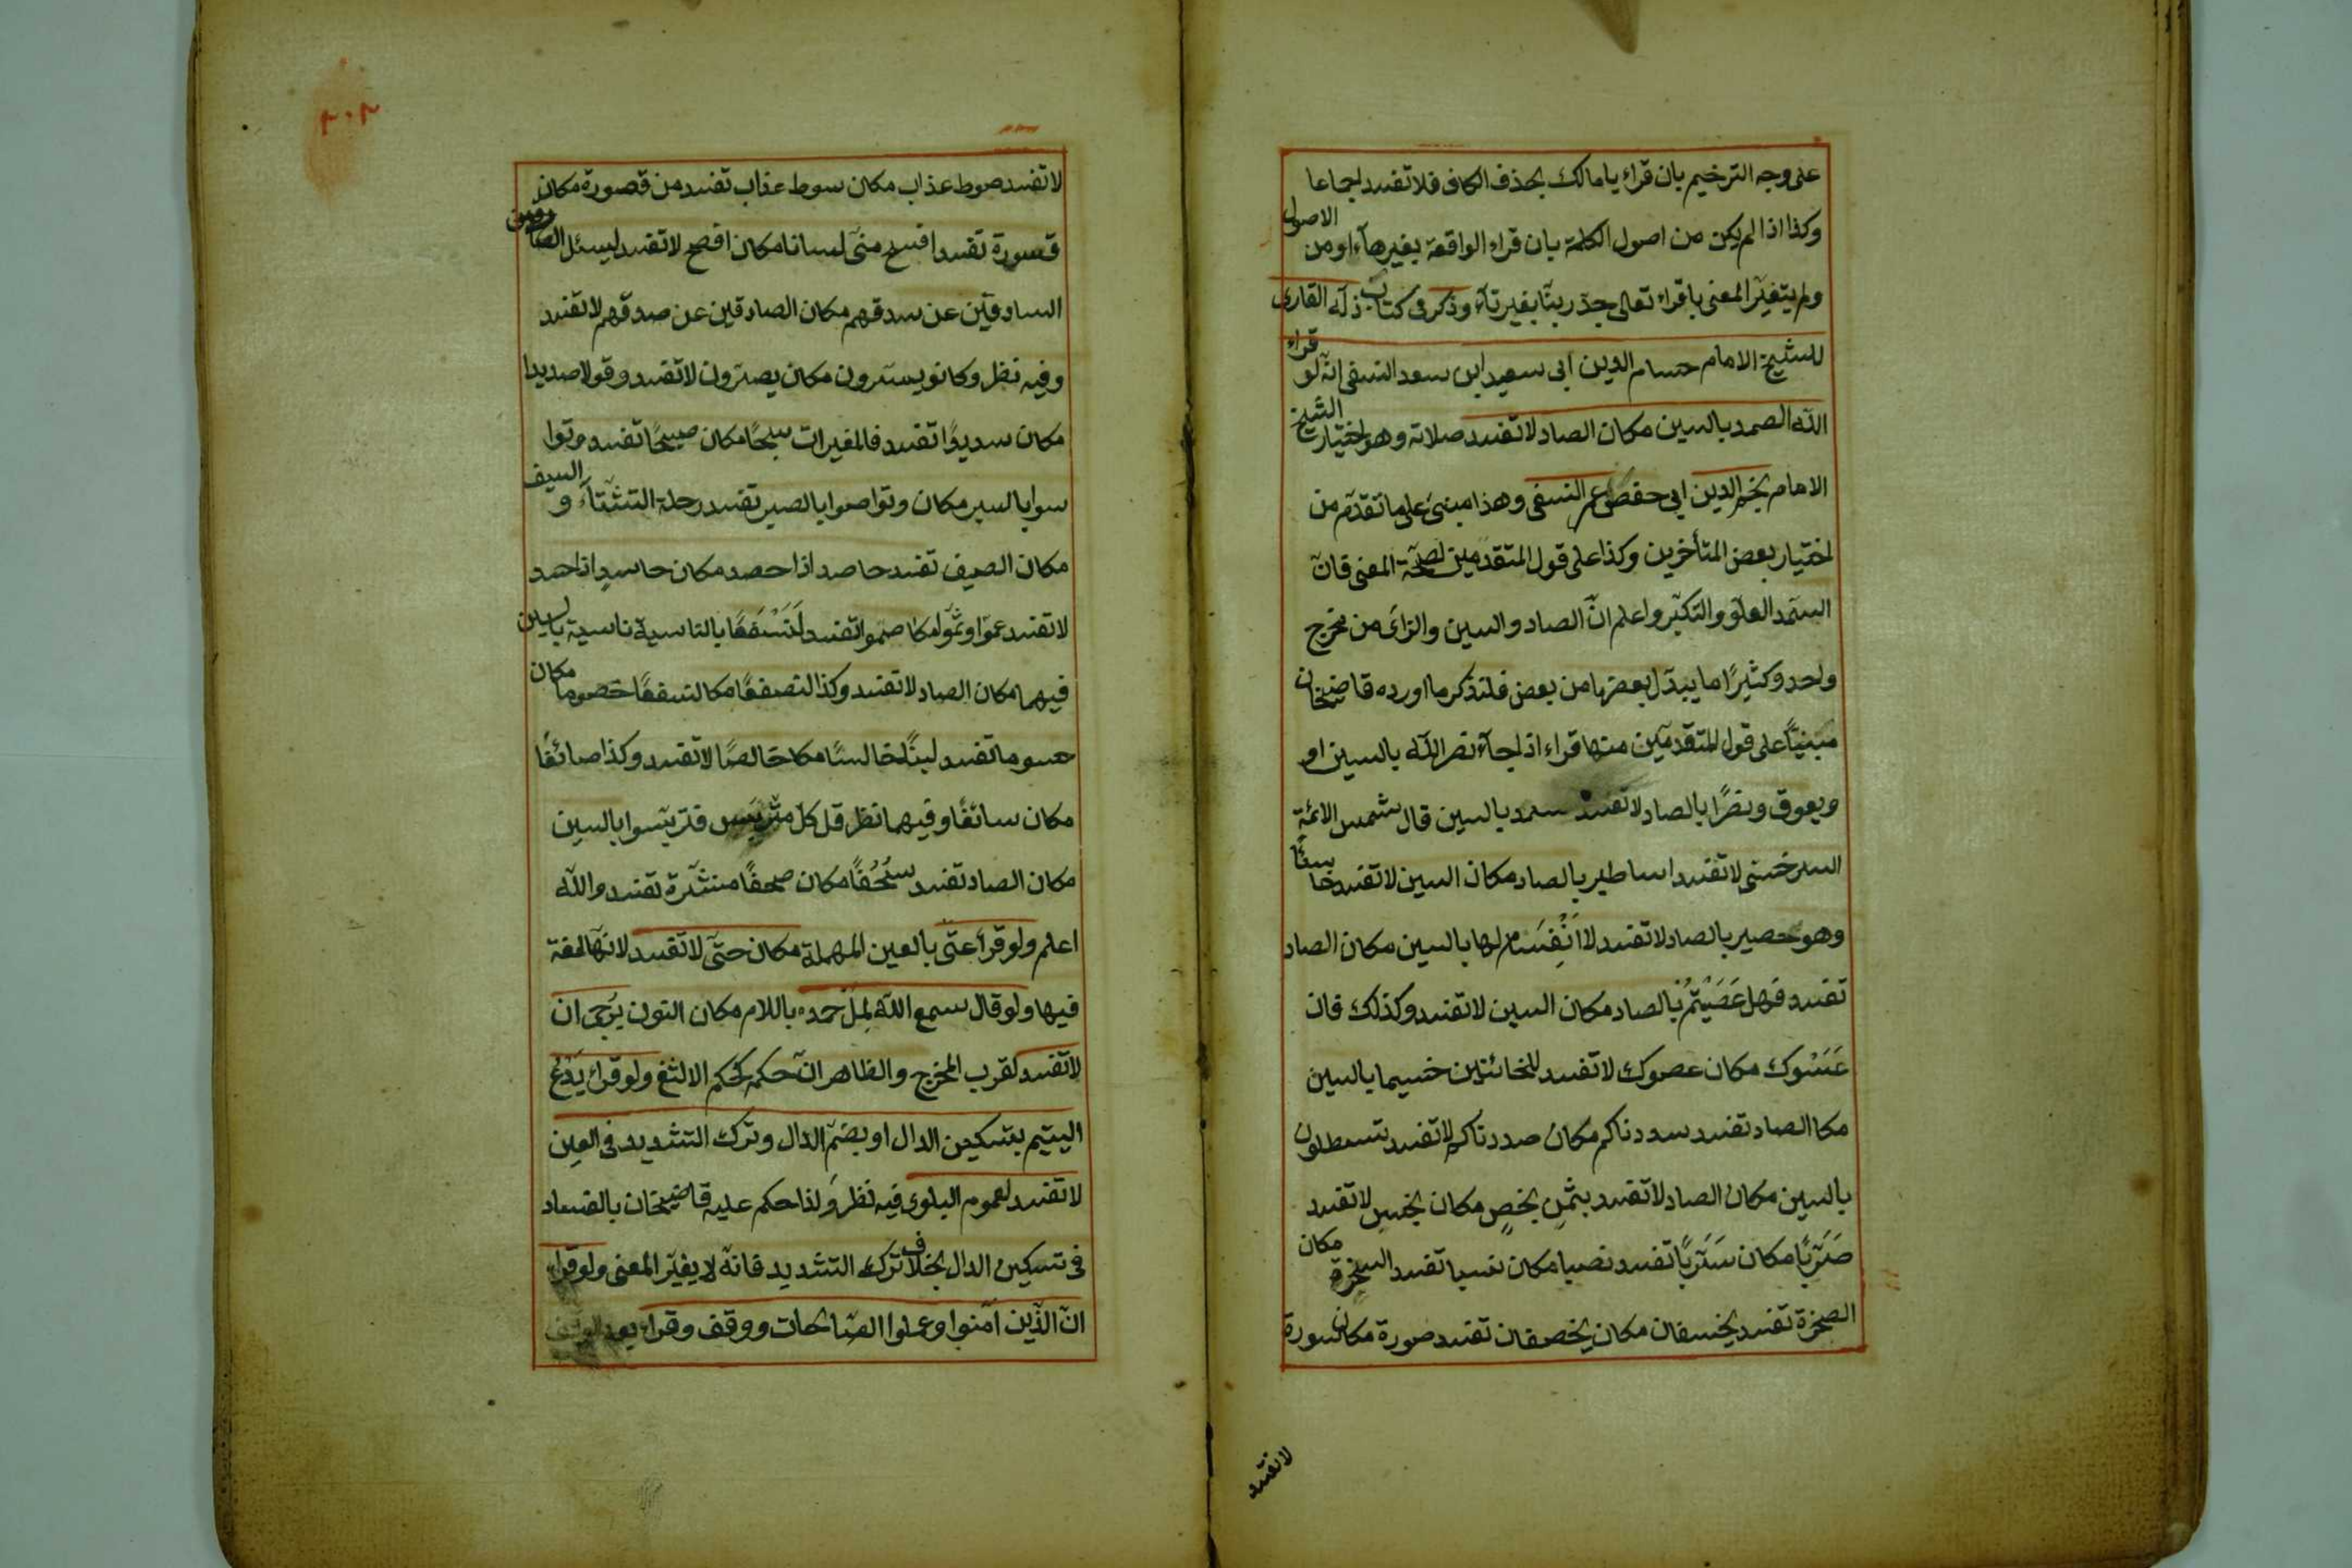 على وجه الترخيم بان قراء يا مالك بحذف الكاف فلا تفسد اجماعا
وكذا اذا لم يكن من اصول الكلمة بان قراء الواقعة بغير هآء او من الاصول
ولم يتغيّر المعنى باقراء تعالى جدّ ربنّا بغير تآء وذكر فى كتاب زلّة القارى
للشيخ الامام حسام الدين ابى سعيد ابن سعد النسفى انّه لو قراء
اللّه الصمد بالسين مكان الصاد لا تفسد صلاته وهو اختيار الشيخ
الامام نجم الدين ابى حفص عمر النسفى وهذا مبنى على ما تقدّم من
اختيار بعض المتأخرين وكذا على قول المتقدمين لصحّة المعنى فانّ
السّمد العلّو والتكبّر واعلم انّ الصاد والسين والزاى من مخرج
واحد وكثيرًا ما يبدّل بعضها من بعض فلنذكر ما اورده قاضيخان
مبنيّاً على قول المتقدّمين منها قراء اذا جآء نصر اللّه بالسين او
ويعوق ونصرًا بالصاد لا تفسد سمد بالسين قال شمس الائمّة
السرخسى لا تفسد اساطير بالصاد مكان السين لا تفسد خاسئًا
وهو حصير بالصاد لا تفسد لا انْفِسَام لها بالسين مكان الصاد
تفسد فهل عَصَيْتُمْ بالصاد مكان السين لا تفسد وكذلك فان
عَسَوْك مكان عصوك لا تفسد للخائنين خسيما بالسين
مكا الصاد تفسد سددناكم مكان صددناكم لا تفسد تسطلون
بالسين مكان الصاد لا تفسد بثمنٍ بخصٍ مكان بخسٍ لا تفسد
صَرَبًا مكان سَرَبًا تفسد نصيا مكان نسيا تفسد السخرة مكان
الصخرة تفسد يخسفان مكان يخصفان تفسد صورة مكان سورة
لا تفسد
لا تفسد صوط عذاب مكان سوط عذاب تفسد من قصورة مكان
قسورة تفسد افسح منّى لسانا مكان افصح لا تفسد ليسئل
السادقين عن سدقهم مكان الصادقين عن صدقهم لا تفسد
وفيه نظر وكانو يسرون مكان يصرّون لا تفسد وقولا صديدا
مكان سديدًا تفسد فالمغيرات سبحًا مكان صبحًا تفسد وتوا
سوا بالسبر مكان وتواصوا بالصبر تفسد رحلة الشّتآء و السيف
مكان الصيف تفسد حاصد اذا حصد مكان حاسدٍ اذا حسد
لا تفسد عموا وثمّوا مكا صموا تفسد لَنَسْفَعًا بالناسية ناسية بالسين
فيهما مكان الصاد لا تفسد وكذا لنصفعًا مكا لنسفعًا خصوما مكان
حسوما تفسد لبنًا خالسًا مكا خالصًا لا تفسد وكذا صائغًا
مكان سائغًا وفيهما نظر قل كل متربس فتربّسوا بالسين
مكان الصاد تفسد سُحُفًا مكان صحفًا منشّرة تفسد واللّه
اعلم ولو قرأ عتّى بالعين المهملة مكان حتّى لا تفسد لانّها لغة
فيها ولو قال سمع اللّه لِمَلْ حمده باللام مكان النون يرجى ان
لا تفسد لقرب المخرج والظاهر انّ حكمه كحكم الالثغ ولو قراء يَدْعُ
اليتيم بتسكين الدال او بضمّ الدال وترك التشديد فى العين
لا تفسد لعموم البلوى فيه نظر ولذا حكم عليه قاضيخان بالفساد
فى تسكين الدال بخلاف ترك التشديد فانّه لا يغيّر المعنى ولو قراء
انّ الّذين آمنوا وعملوا الصّالحات ووقف وقراء بعد
۲۰۲